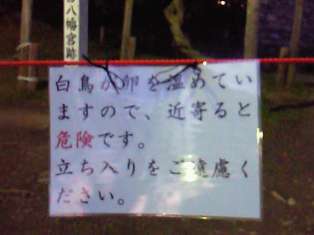 八幡宮跡
白鳥が卵を温めてい
ますので、近寄ると
危険です。
立ち入りをご遠慮く
ださい。